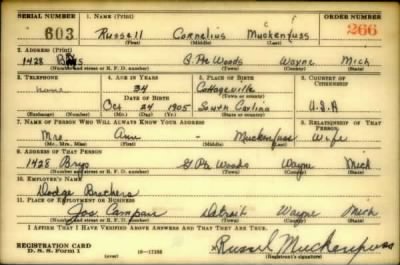 SERIAL NUMBER 1. NAME (Print) ORDER NUMBER
603 Russell Cornelius Muckenfuss 266
(First) (Middle) (Last)
2. ADDRESS (Print)
1428 Brys G. Pte Woods Wayne Mich
(Number and street or R. F. D. number) (Town) (County) (State)
3. TELEPHONE 4. AGE IN YEARS 5. PLACE OF BIRTH 6. COUNTRY OF CITIZENSHIP
none 34 Cottageville
DATE OF BIRTH
Oct 24 1905 South Carlina U.S.A
(Exchange) (Number) (Mo.) (Day) (Yr.) (State or country)
7. NAME OF PERSON WHO WILL ALWAYS KNOW YOUR ADDRESS 8. RELATIONSHIP OF THAT PERSON
Mrs. Ann - Muckenfuss Wife
(Mr., Mrs., Miss) (First) (Middle) (Last)
9. ADDRESS OF THAT PERSON
1428 Brys G Pte Woods Wayne Mich
(Number and street or R. F. D. number) (Town) (County) (State)
10. EMPLOYER'S NAME
Dodge Brothers
11. PLACE OF EMPLOYMENT OR BUSINESS
Jos Campau Detroit Wayne Mich
(Number and street or R. F. D. number) (Town) (County) (State)
I AFFIRM THAT I HAVE VERIFIED ABOVE ANSWERS AND THAT THEY ARE TRUE.
REGISTRATION CARD
D. S. S. Form 1 (over) 16-17105 Russell Muckenfuss
(Registrant's signature)